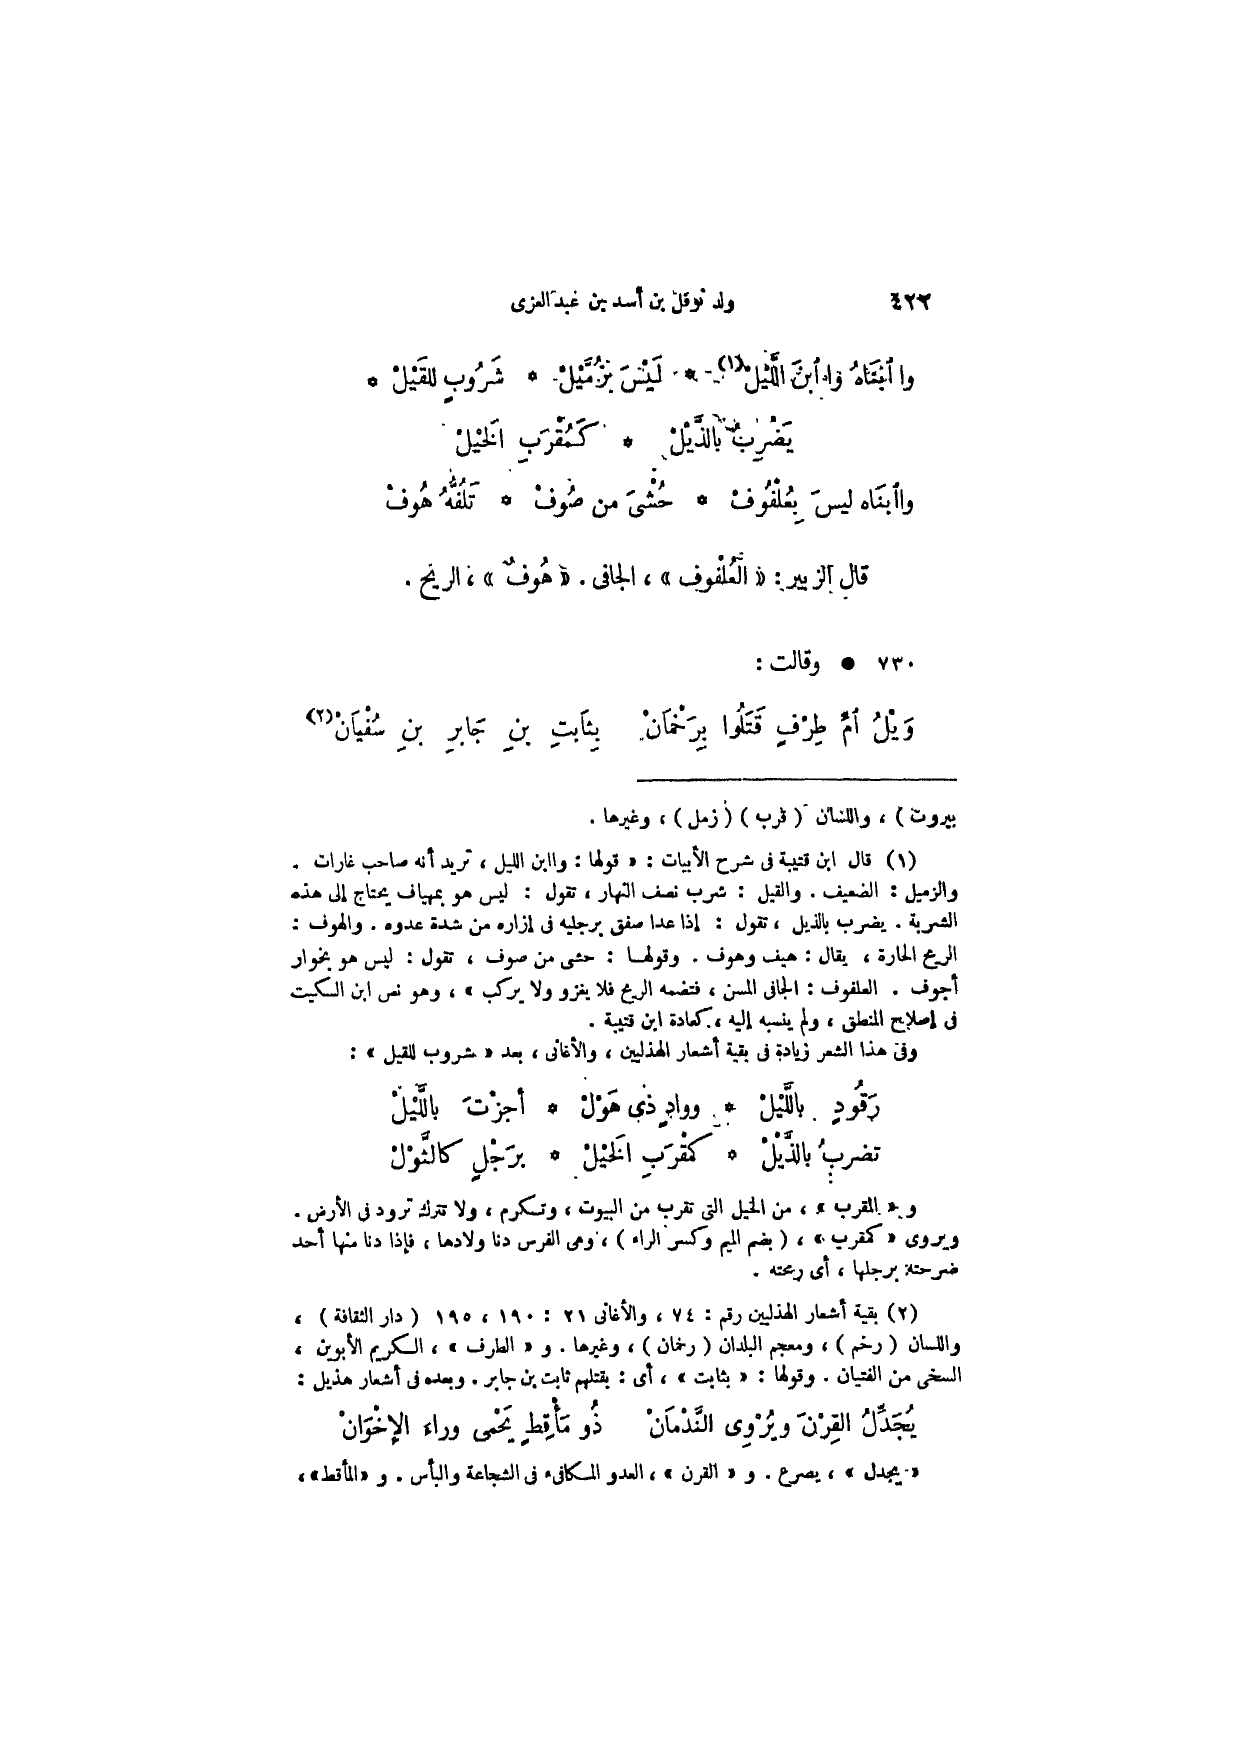 ٤٢٢ ولد نوفل بن أسد بن عبد العزى
وا ٱبْنَاهُ وا ٱبنَ اللَّيْلْ(١) * لَيْسَ بِزُمَّيْلْ * شَرُوبٍ للقَيْلْ *
يَضْرِبُ بالذَّيْلْ * كَمُقْرَبِ الخَيْلْ
واٱبنَاه ليسَ بِعُلْفُوفْ * حُشْىَ من صُوفْ * تَلُفُّهُ هُوفْ
قال الزبير : « العُلْفوف » ، الجافى . « هُوفٌ » ، الريح .
٧٣٠ ● وقالت :
وَيْلُ أمِّ طِرْفٍ قَتَلُوا بِرَخْمَانْ بِثَابَتِ بنِ جَابرِ بنِ سُفْيَانْ(٢)
بيروت ) ، واللسان ( قرب ) ( زمل ) ، وغيرها .
(١) قال ابن قتيبة فى شرح الأبيات : « قولها : واابن الليل ، تريد أنه صاحب غارات .
والزميل : الضعيف . والقيل : شرب نصف النهار ، تقول : ليس هو بمهياف يحتاج إلى هذه
الشربة . يضرب بالذيل ، تقول : إذا عدا صفق برجليه فى إزاره من شدة عدوه . والهوف :
الريح الحارة ، يقال : هيف وهوف . وقولها : حشى من صوف ، تقول : ليس هو بخوار
أجوف . العلفوف : الجافى المسن ، فتضمه الريح فلا يغزو ولا يركب » ، وهو نص ابن السكيت
فى إصلاح المنطق ، ولم ينسبه إليه ، كعادة ابن قتيبة .
وفى هذا الشعر زيادة فى بقية أشعار الهذليين ، والأغانى ، بعد « شروب للقيل » :
رَقُودٍ باللَّيْلْ * ووادٍ ذى هَوْلْ * أجزْتَ باللَّيْلْ
تضربُ بالذَّيْلْ * كمقْرَبِ الخَيْلْ * برَجْلٍ كالثَّوْلْ
و « المقرب » ، من الخيل التى تقرب من البيوت ، وتكرم ، ولا تترك ترود فى الأرض .
ويروى « كمقرب » ، ( بضم الميم وكسر الراء ) ، وهى الفرس دنا ولادها ، فإذا دنا منها أحد
ضرحته برجلها ، أى رمحته .
(٢) بقية أشعار الهذليين رقم : ٧٤ ، والأغانى ٢١ : ١٩٠ ، ١٩٥ ( دار الثقافة ) ،
واللسان ( رخم ) ، ومعجم البلدان ( رخان ) ، وغيرها . و « الطرف » ، الكريم الأبوين ،
السخى من الفتيان . وقولها : « بثابت » ، أى : بقتلهم ثابت بن جابر . وبعده فى أشعار هذيل :
يُجَدِّلُ القِرْنَ ويُرْوِى النَّدْمَانْ ذُو مَأْقِطٍ يَحْمى وراءَ الإخْوَانْ
« يجدل » ، يصرع . و « القرن » ، العدو المكافىء فى الشجاعة والبأس . و «المأقط» ،